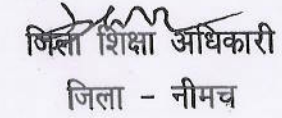 जिला शिक्षा अधिकारी
जिला - नीमच